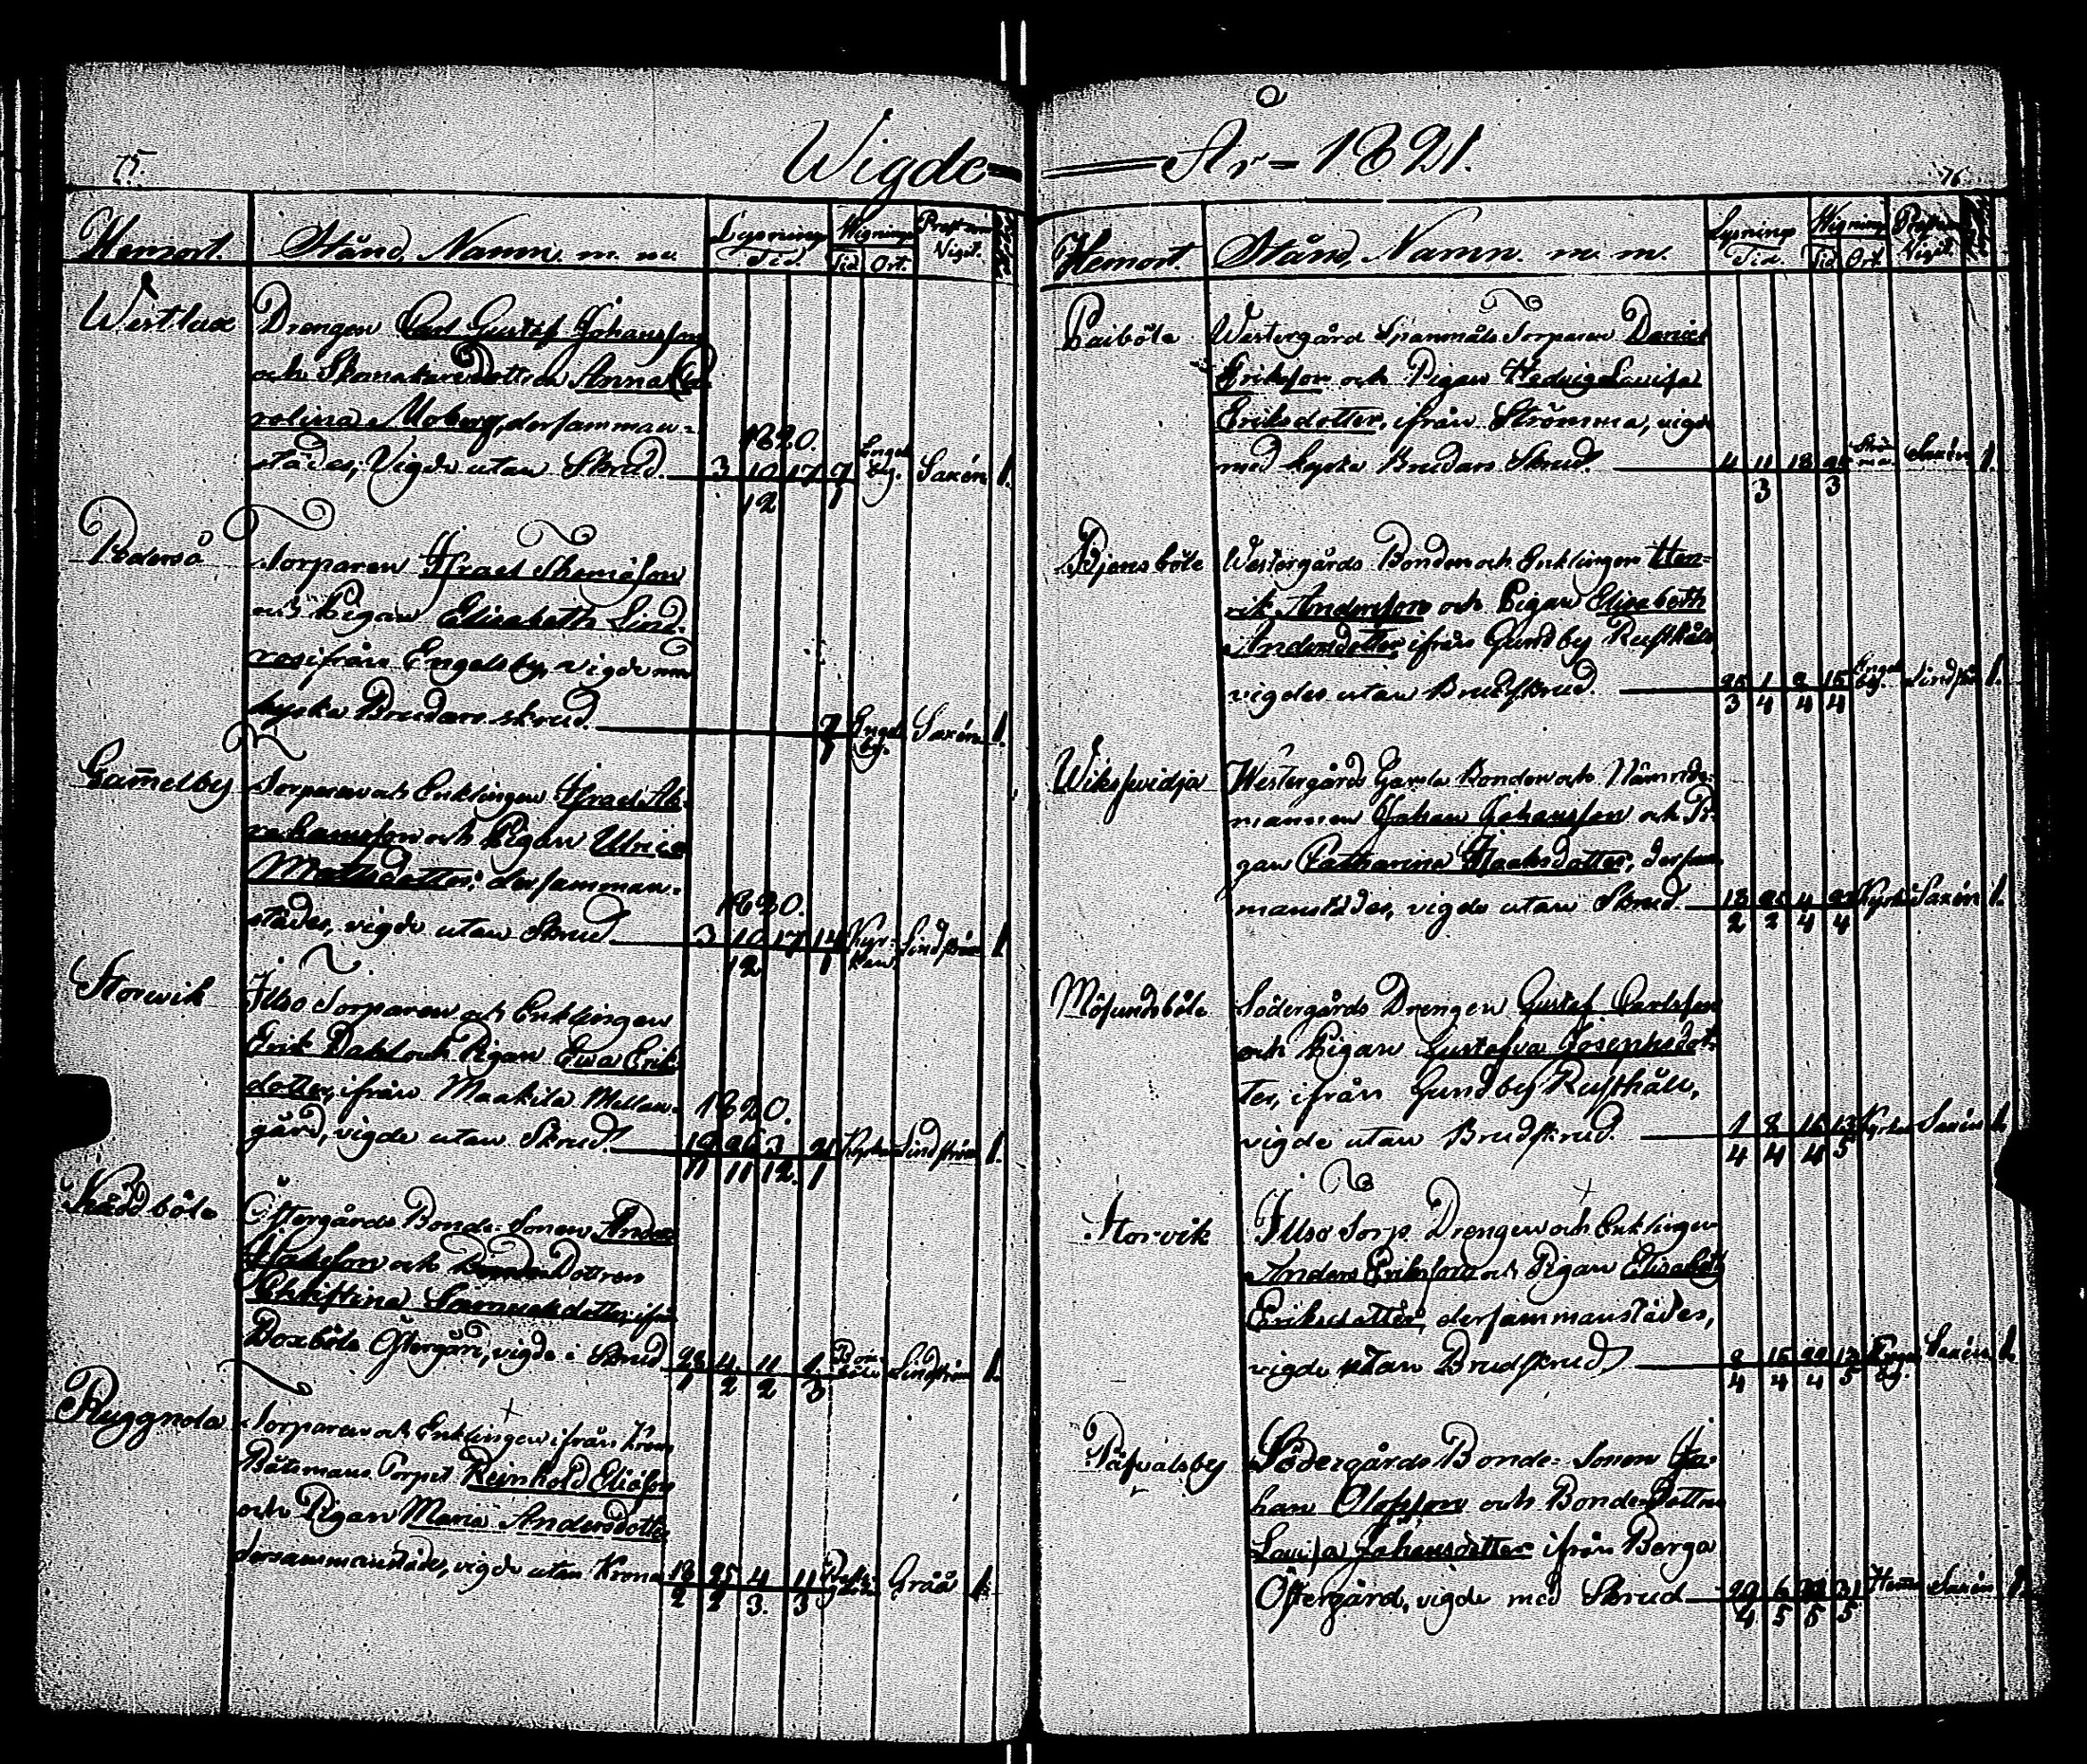 75.
Wigde
Hemort. Stånd, Namn. m. m. Lysnings Tid. Wignings Tid Ort. Prest som Vigdt.
Westlax Drengen Carl Gustaf Johansson
och Skomakare Dottren Anna Ca-
rolina Moberg, dersamman-
1820.
städes; Vigde utan Skrud. 3 10 17 7 Engels by. Saxén 1.
12 1
Pederså Torparen Israel Thomasson
och Pigan Elisabeth Lind-
ros ifrån Engelsby, vigde med
kyrko Brudars skrud. 7 Engels by. Saxén 1.
1
Gam̄elby Torparen och Enklingen Israel Ab-
rahamsson och Pigan Ulrica
Mattsdotter; dersamman-
1820.
städes, vigde utan Skrud 3 10 17 14 Kyr- kan. Lindström 1
12 1
Storwik Illso Torparen och Enklingen
Erik Dahl och Pigan Ewa Eriks
dotter, ifrån Maakila Mellan-
1820.
gård, vigde utan Skrud. 19 26 3 21 Kyrkan Lindström 1.
11 11 12. 1
Skäddböle Östergårds Bonde-Sonen Anders
Isaksson och Bonde Dottren
Christina Samuelsdotter, ifrån
Doxböle Östergård, vigde i Skrud 28 4 11 1 Dox böle Lindström 1.
1 2 2 3
Ruggnola Torparen och Enklingen ifrån Krono
Båtsmans Torpet Reinhold Eliasson
och Pigan Maria Andersdotter
dersammanstädes, vigde utan Krona 18 25 4 11 Prest- gården Gråå 1.
2 2 3. 3
År 1821.
76
Hemort. Stånd, Namn. m. m. Lysnings Tid. Wignings Tid Ort. Presten Vigdt.
Paiböle Westergård Spannmåls Torparen Daniel
Eriksson och Pigan Hedvig Lovisa
Eriksdotter, ifrån Strömma, vigde
med kyrko Brudars Skrud. 4 11 18 25 Ströma Saxén 1.
3 3
Bjensböle Westergårds Bonden och Enklingen Hen-
rik Andersson och Pigan Elisabeth
Andersdotter ifrån Gundby Rusthåll,
vigdes utan Brudskrud. 25 1 8 15 Engels by. Lindström 1.
3 4 4 4
Wiksvidja Westergårds Gamla Bonden och Nämnde-
mannen Johan Johansson och Pi-
gan Catharina Isaksdotter, dersam-
manstädes, vigde utan Skrud. 18 25 4 22 Kyrkan Saxén 1.
2 2 4 4
Mösundsböle Södergårds Drengen Gustaf Carlsson
och Pigan Gustafva Josephsdot-
ter, ifrån Gundby Rusthåll,
vigde utan Brudskrud. 1 8 15 13 Kyrkan Saxén 1.
4 4 4 5
Storvik Illso Torp. Drengen och Enklingen
Anders Eriksson och Pigan Elisabeth
Eriksdotter, dersammanstädes,
vigde utan Brudskrud 8 15 22 13 Engels by. Saxén 1.
4 4 4 5
Påfvalsby Södergårds Bonde-Sonen Jo-
han Olofsson och Bonde Dottren
Lovisa Johansdotter ifrån Berga
Östergård, vigde med Skrud 29 6 31 Hem̄a Saxén 1.
4 5 5 5